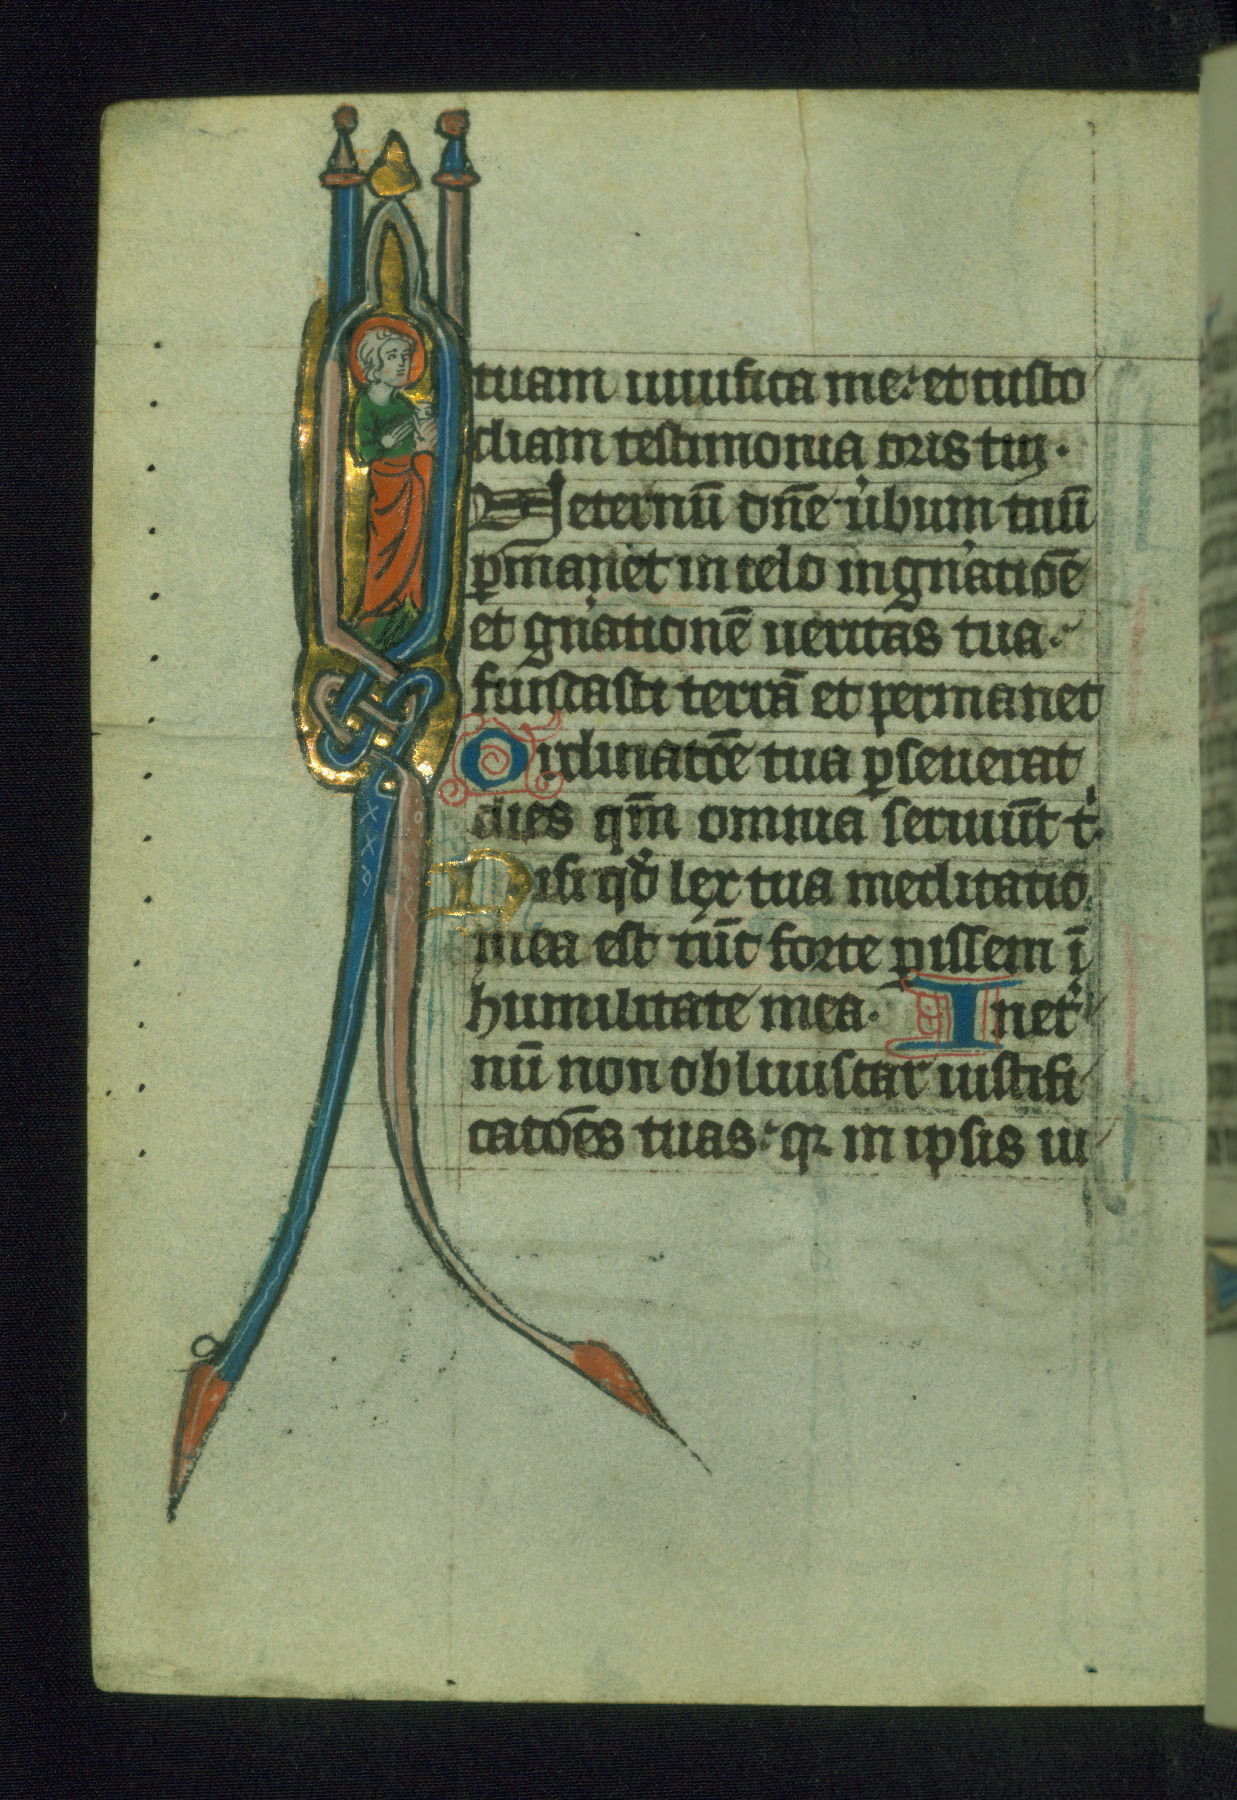 tuam uiuifica me: et custo
diam testimonia oris tui.
In eternū dñe u̓bum tuū
p̄manet in celo in gn̓atiōe
et gn̓ationē ueritas tua.
fundasti terrā et permanet
Ordinatōe tua p̱seuerat
dies qm̄ omnia seruiūt t̓.
Nisi qd̓ lex tua meditatio
mea est tūc forte p̱issem ī
humilitate mea. In et̓
nū non obliuiscar iustifi
catōes tuas: qr in ipsis ui